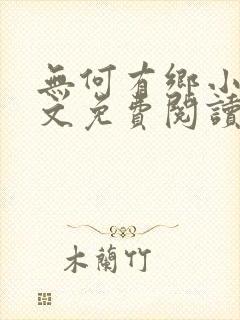 無何有鄉小
文免費閱讀
木蘭竹